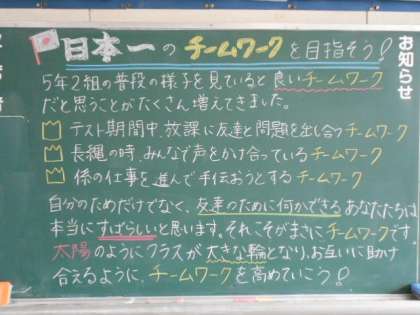 日本一のチームワークを目指そう!
お知らせ
5年2組の普段の様子を見ていると良いチームワーク
だと思うことがたくさん増えてきました。
テスト期間中、放課に友達と問題を出し合うチームワーク
長縄の時、みんなで声をかけ合っているチームワーク
係の仕事を進んで手伝おうとするチームワーク
自分のためだけでなく、友達のために何かできるあなたたちは
本当にすばらしいと思います。それこそがまさにチームワークです
太陽のようにクラスが大きな輪となり、お互いに助け
合えるように、チームワークを高めていこう!